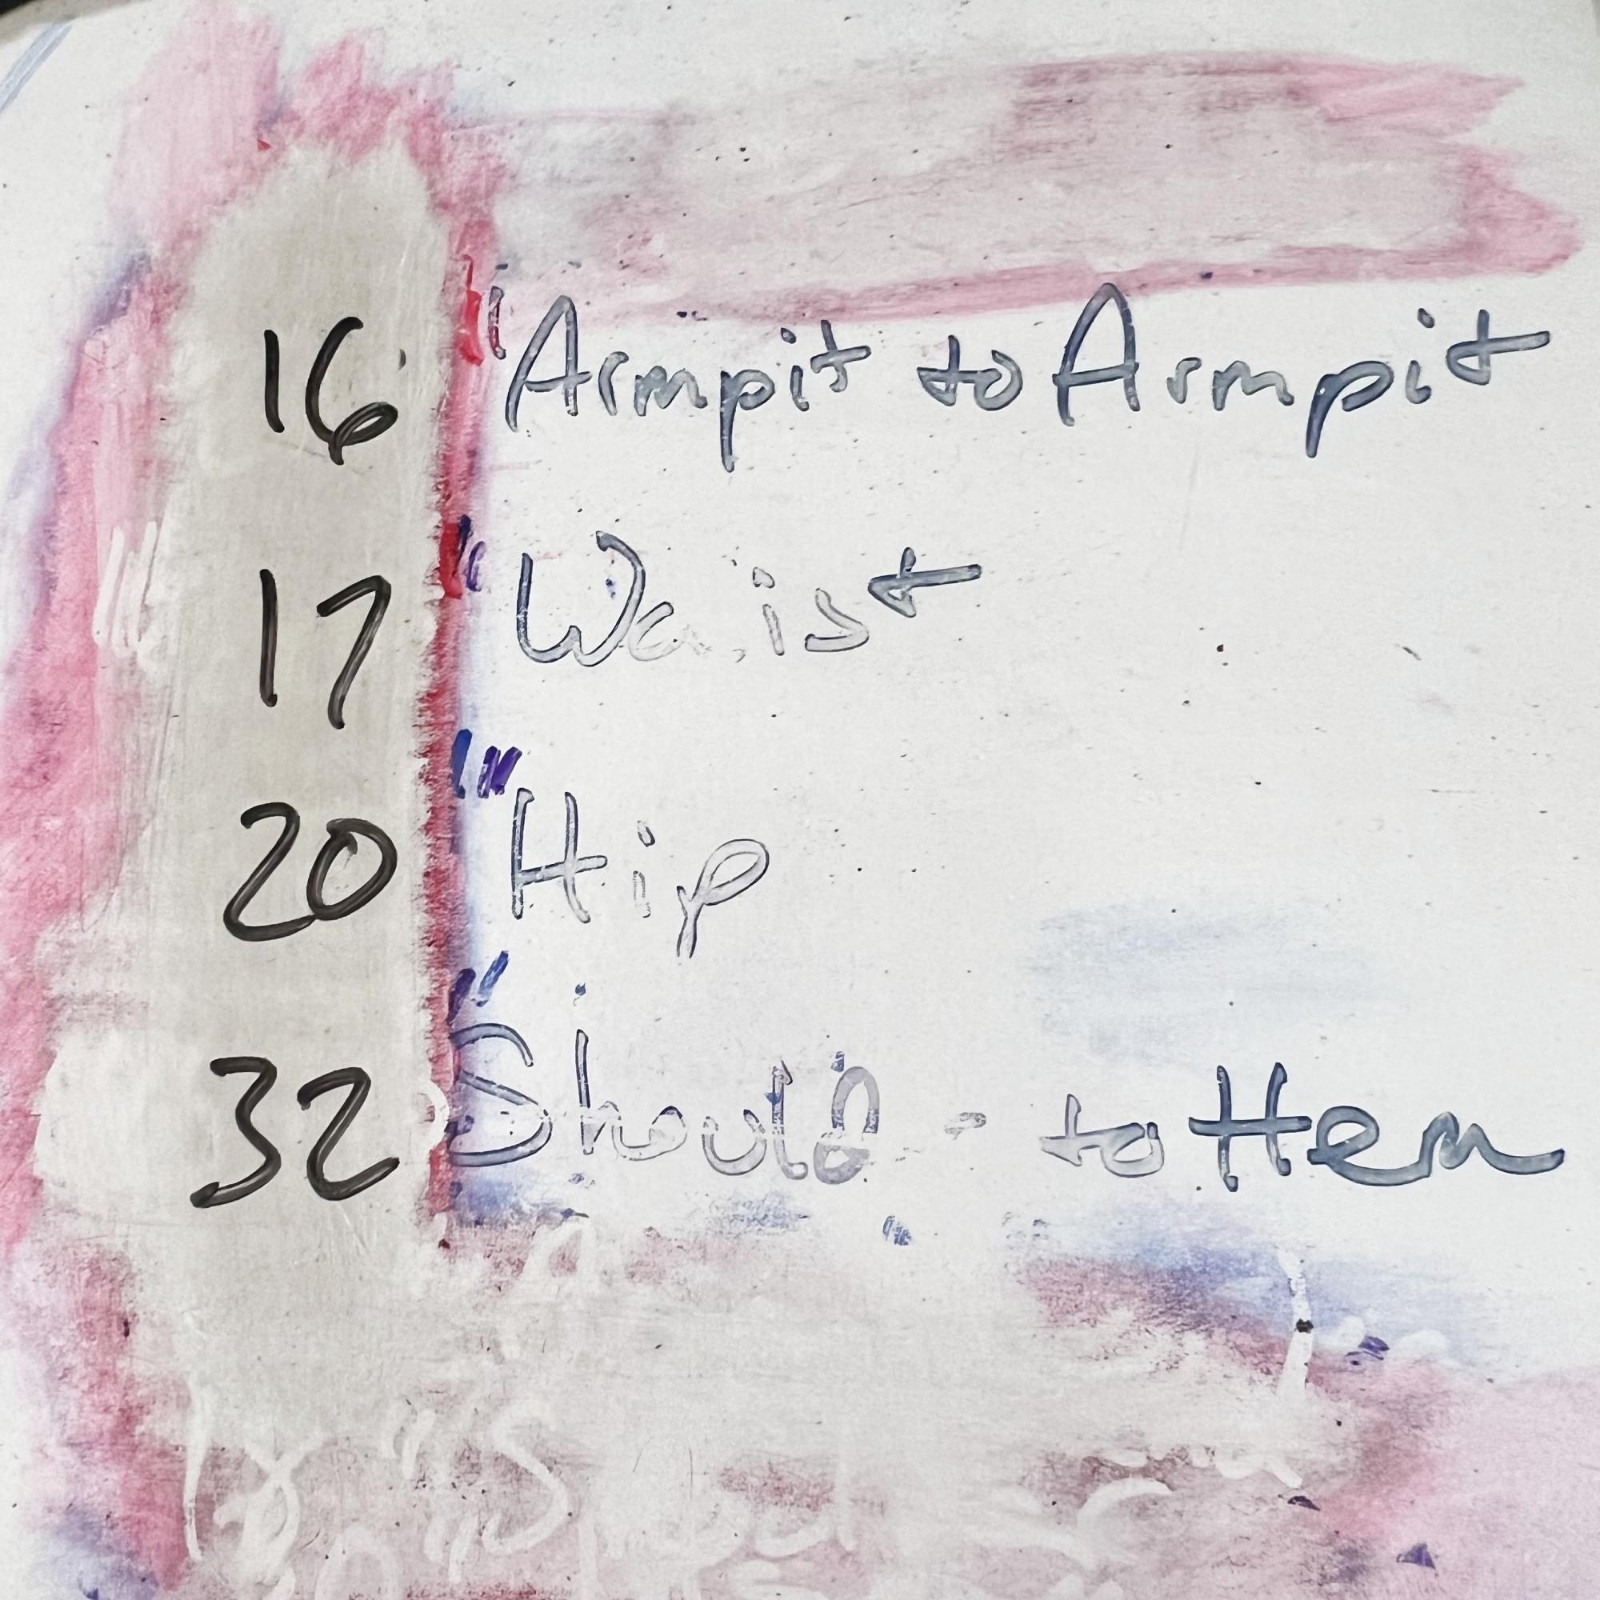 16" Armpit to Armpit
17" Waist
20" Hip
32" Should - to Hem